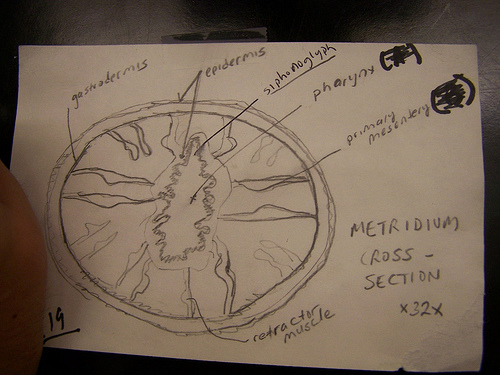 gastrodermis
epidermis
siphonoglyph
pharynx
primary
mesentery
METRIDIUM
CROSS-
SECTION
×32×
retractor
muscle
19